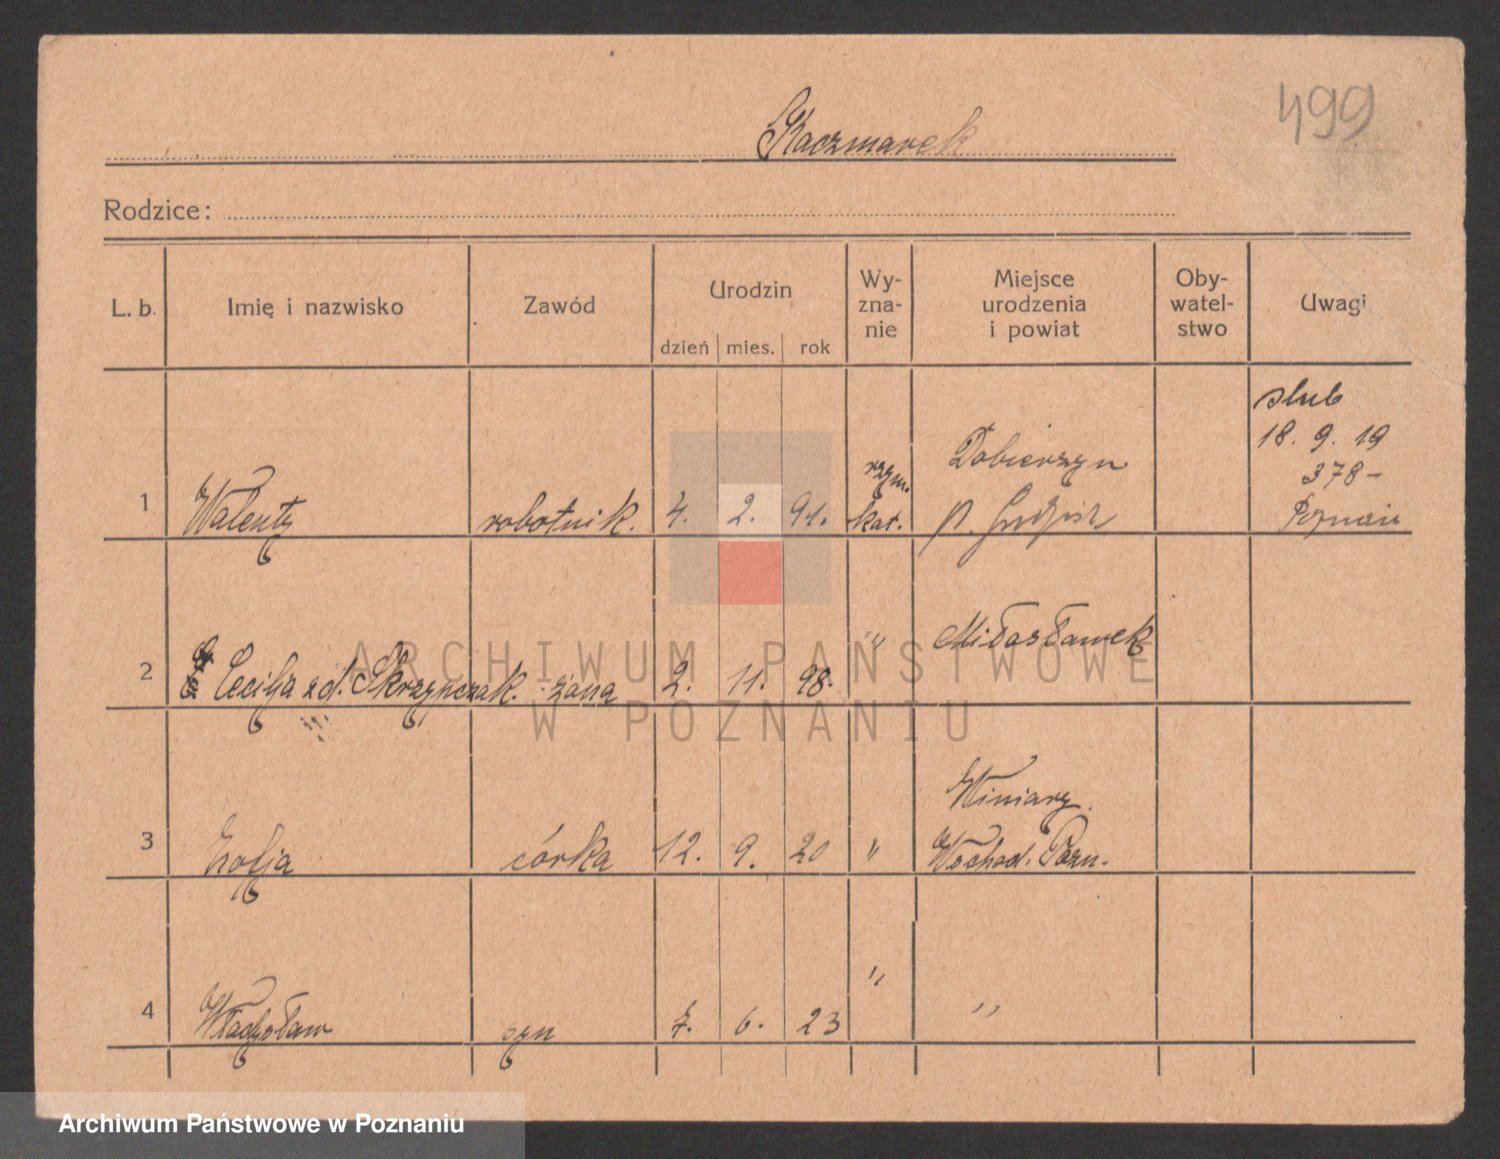 499
Kaczmarek
Rodzice:
L. b. Imię i nazwisko Zawód Urodzin dzień mies. rok Wy-zna-nie Miejsce urodzenia i powiat Oby-watel-stwo Uwagi
ślub
18. 9. 19
378-
Poznań
Dobierzyn
rzym.
1 Walenty robotnik. 4. 2. 91. kat. p. Grodzisk
" Miłosławek
2 Cecilja zd. Skrzypczak. żona 2. 11. 98.
Winiary.
3 Zofja córka 12. 9. 20 " Wschod. Pozn.
"
4 Władysław syn 7. 6. 23 "
ARCHIWUM PAŃSTWOWE
W POZNANIU
Archiwum Państwowe w Poznaniu